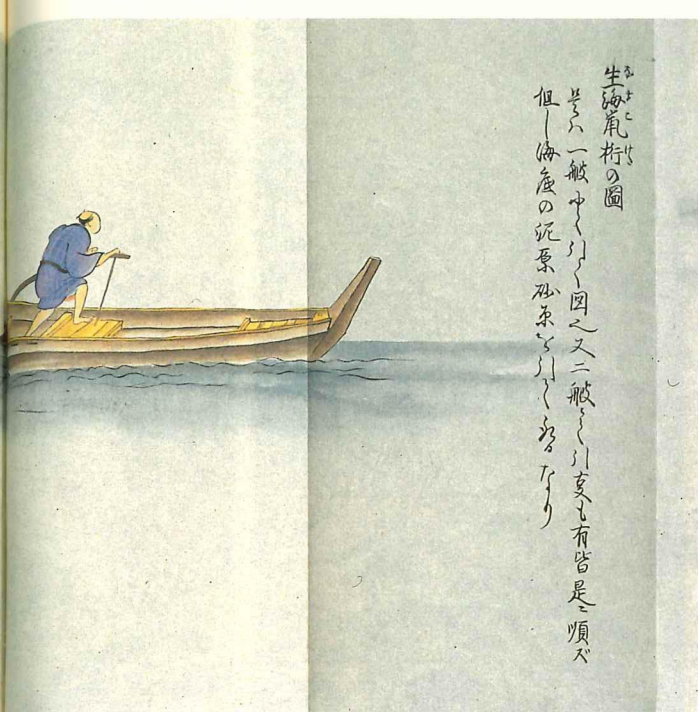 生海鼠桁の圖
なまこけた
是ハ一艘ニて引く図也又二艘ニて引事も有皆是ニ順ズ
但し海底の泥原砂原を引く斗なり